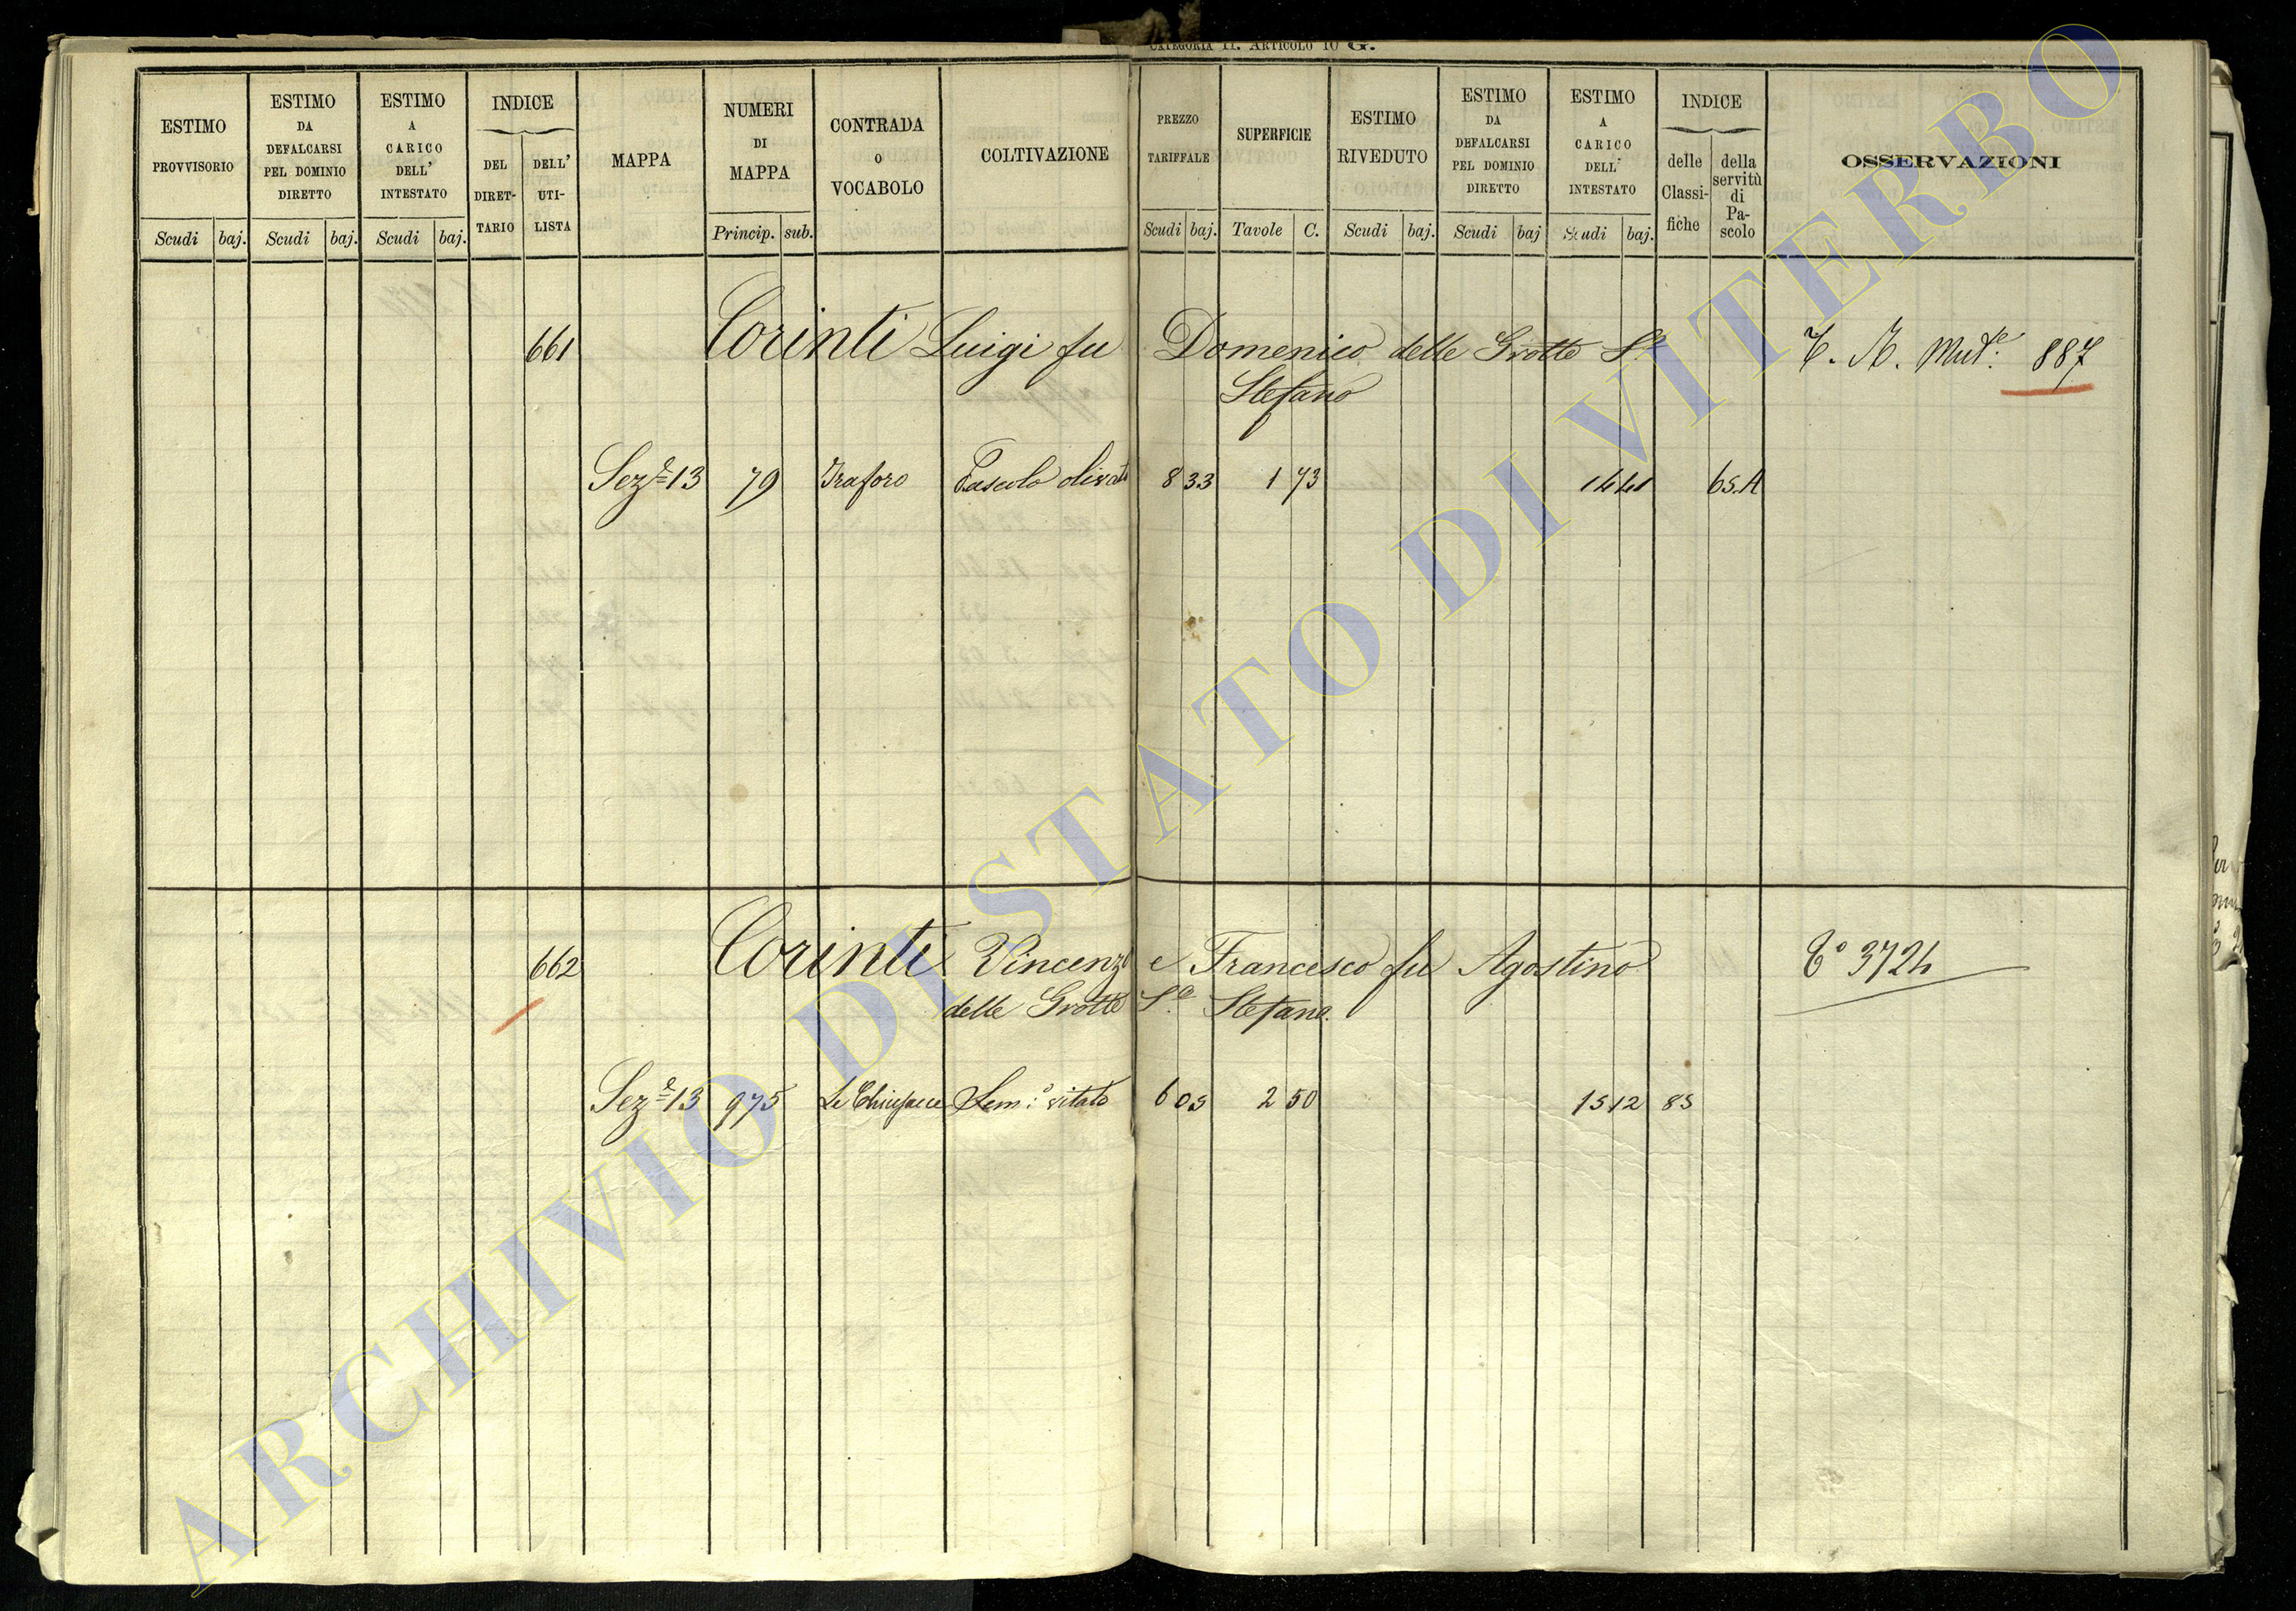 CATEGORIA II. ARTICOLO 10 G.
ESTIMO PROVVISORIO
Scudi baj.
ESTIMO DA DEFALCARSI PEL DOMINIO DIRETTO
Scudi baj.
ESTIMO A CARICO DELL' INTESTATO
Scudi baj.
INDICE
DEL DIRET-TARIO
DELL' UTI-LISTA
MAPPA
NUMERI DI MAPPA
Princip. sub.
CONTRADA O VOCABOLO
COLTIVAZIONE
PREZZO TARIFFALE
Scudi baj.
SUPERFICIE
Tavole C.
ESTIMO RIVEDUTO
Scudi baj.
ESTIMO DA DEFALCARSI PEL DOMINIO DIRETTO
Scudi baj
ESTIMO A CARICO DELL' INTESTATO
Scudi baj.
INDICE
delle Classi-fiche
della servitù di Pa-scolo
OSSERVAZIONI
661 Corinti Luigi fu Domenico delle Grotte Sto Mute: 887
Stefano
Seze 13 79 Traforo Pascolo olivato 8 33 1 73 14 41 65.A
662 Corinti Vincenzo e Francesco fu Agostino Co 3724
delle Grotte Sto Stefano.
Seze 13 975 Le Chiusacce Sem:o vitato 6 05 2 50 15 12 85
ARCHIVIO DI STATO DI VITERBO